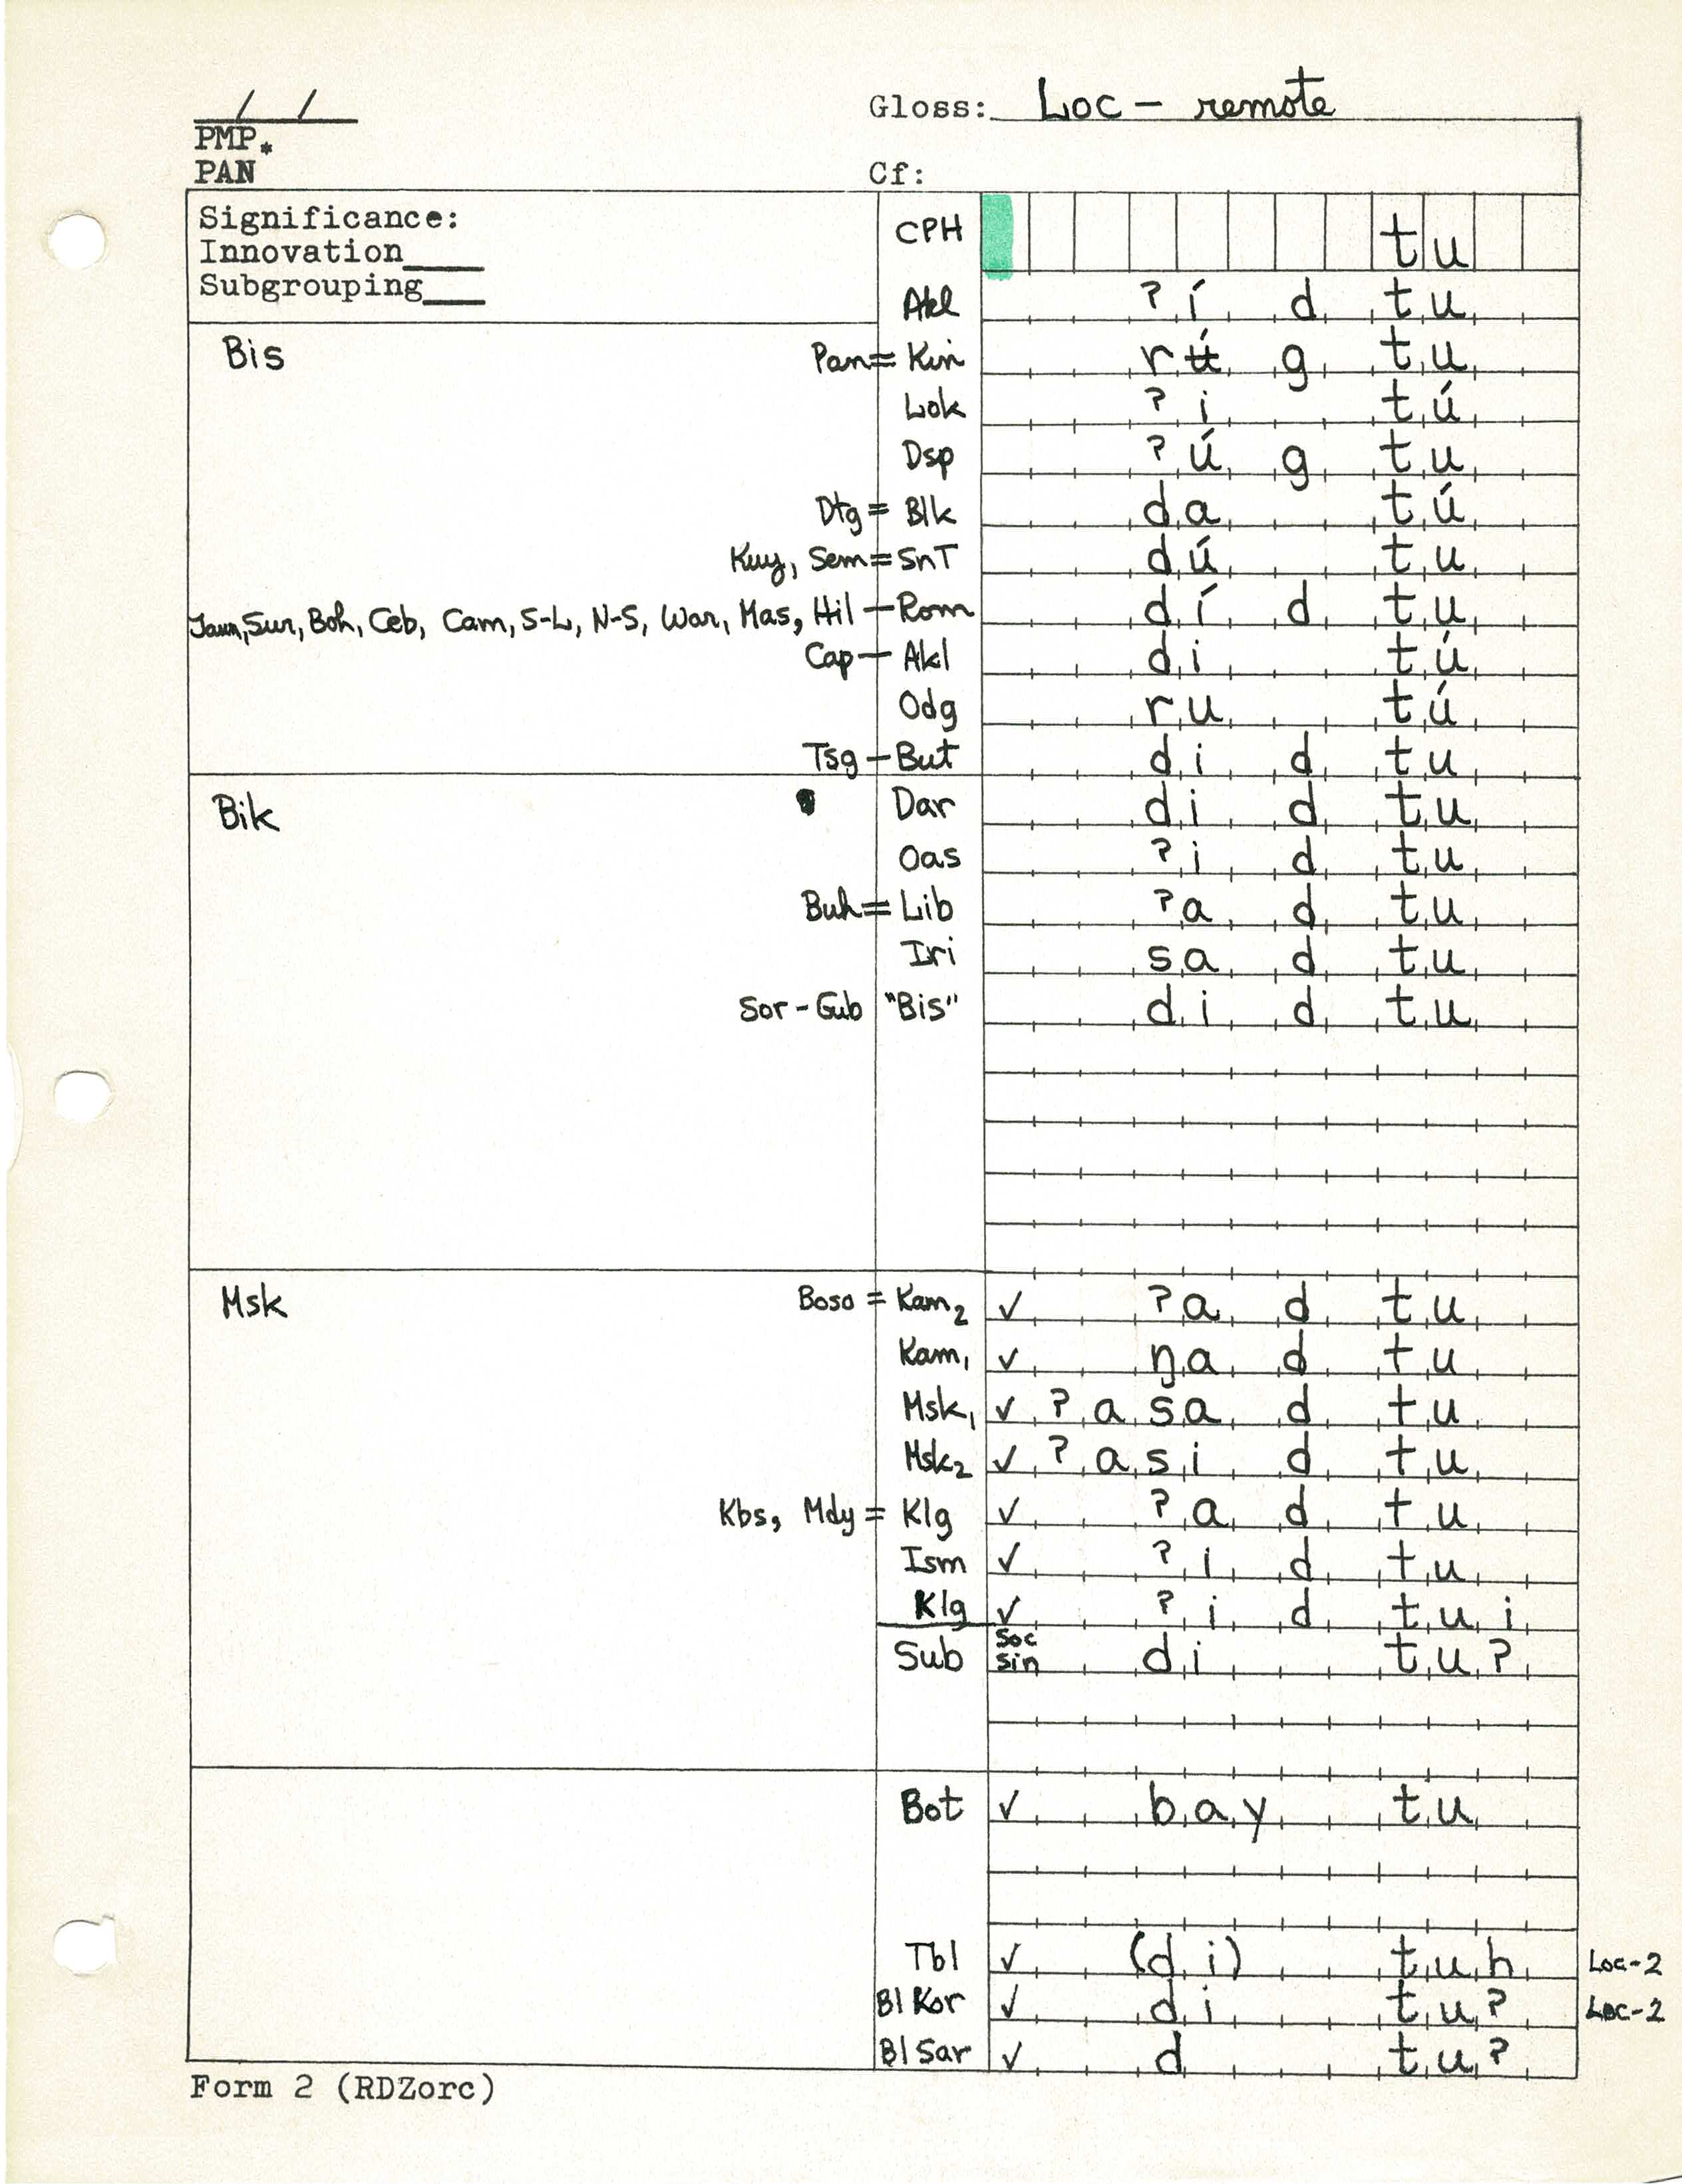 Gloss: Loc – remote
PMP*
PAN
Cf:
Significance:
Innovation____
Subgrouping___
CPH t u
Akl ʔ í d t u
Bis Pan = Kin r ʉ́ g t u
Lok ʔ i t ú
Dsp ʔ ú g t u
Dtg = Blk d a t ú
Kuy, Sem = SnT d ú t u
Jaun, Sur, Boh, Ceb, Cam, S-L, N-S, War, Mas, Hil – Rom d í d t u
Cap – Akl d i t ú
Odg r u t ú
Tsg – But d i d t u
Bik Dar d i d t u
Oas ʔ i d t u
Buh = Lib ʔ a d t u
Iri s a d t u
Sor - Gub "Bis" d i d t u
Msk Boso = Kam2 ✓ ʔ a d t u
Kam1 ✓ ŋ a d t u
Msk1 ✓ ʔ a s a d t u
Msk2 ✓ ʔ a s i d t u
Kbs, Mdy = Klg ✓ ʔ a d t u
Ism ✓ ʔ i d t u
Klg ✓ ʔ i d t u i
Sub Soc Sin d i t u ʔ
Bot ✓ b a y t u
Tbl ✓ (d i) t u h Loc-2
Bl Kor ✓ d i t u ʔ Loc-2
Bl Sar ✓ d t u ʔ
Form 2 (RDZorc)